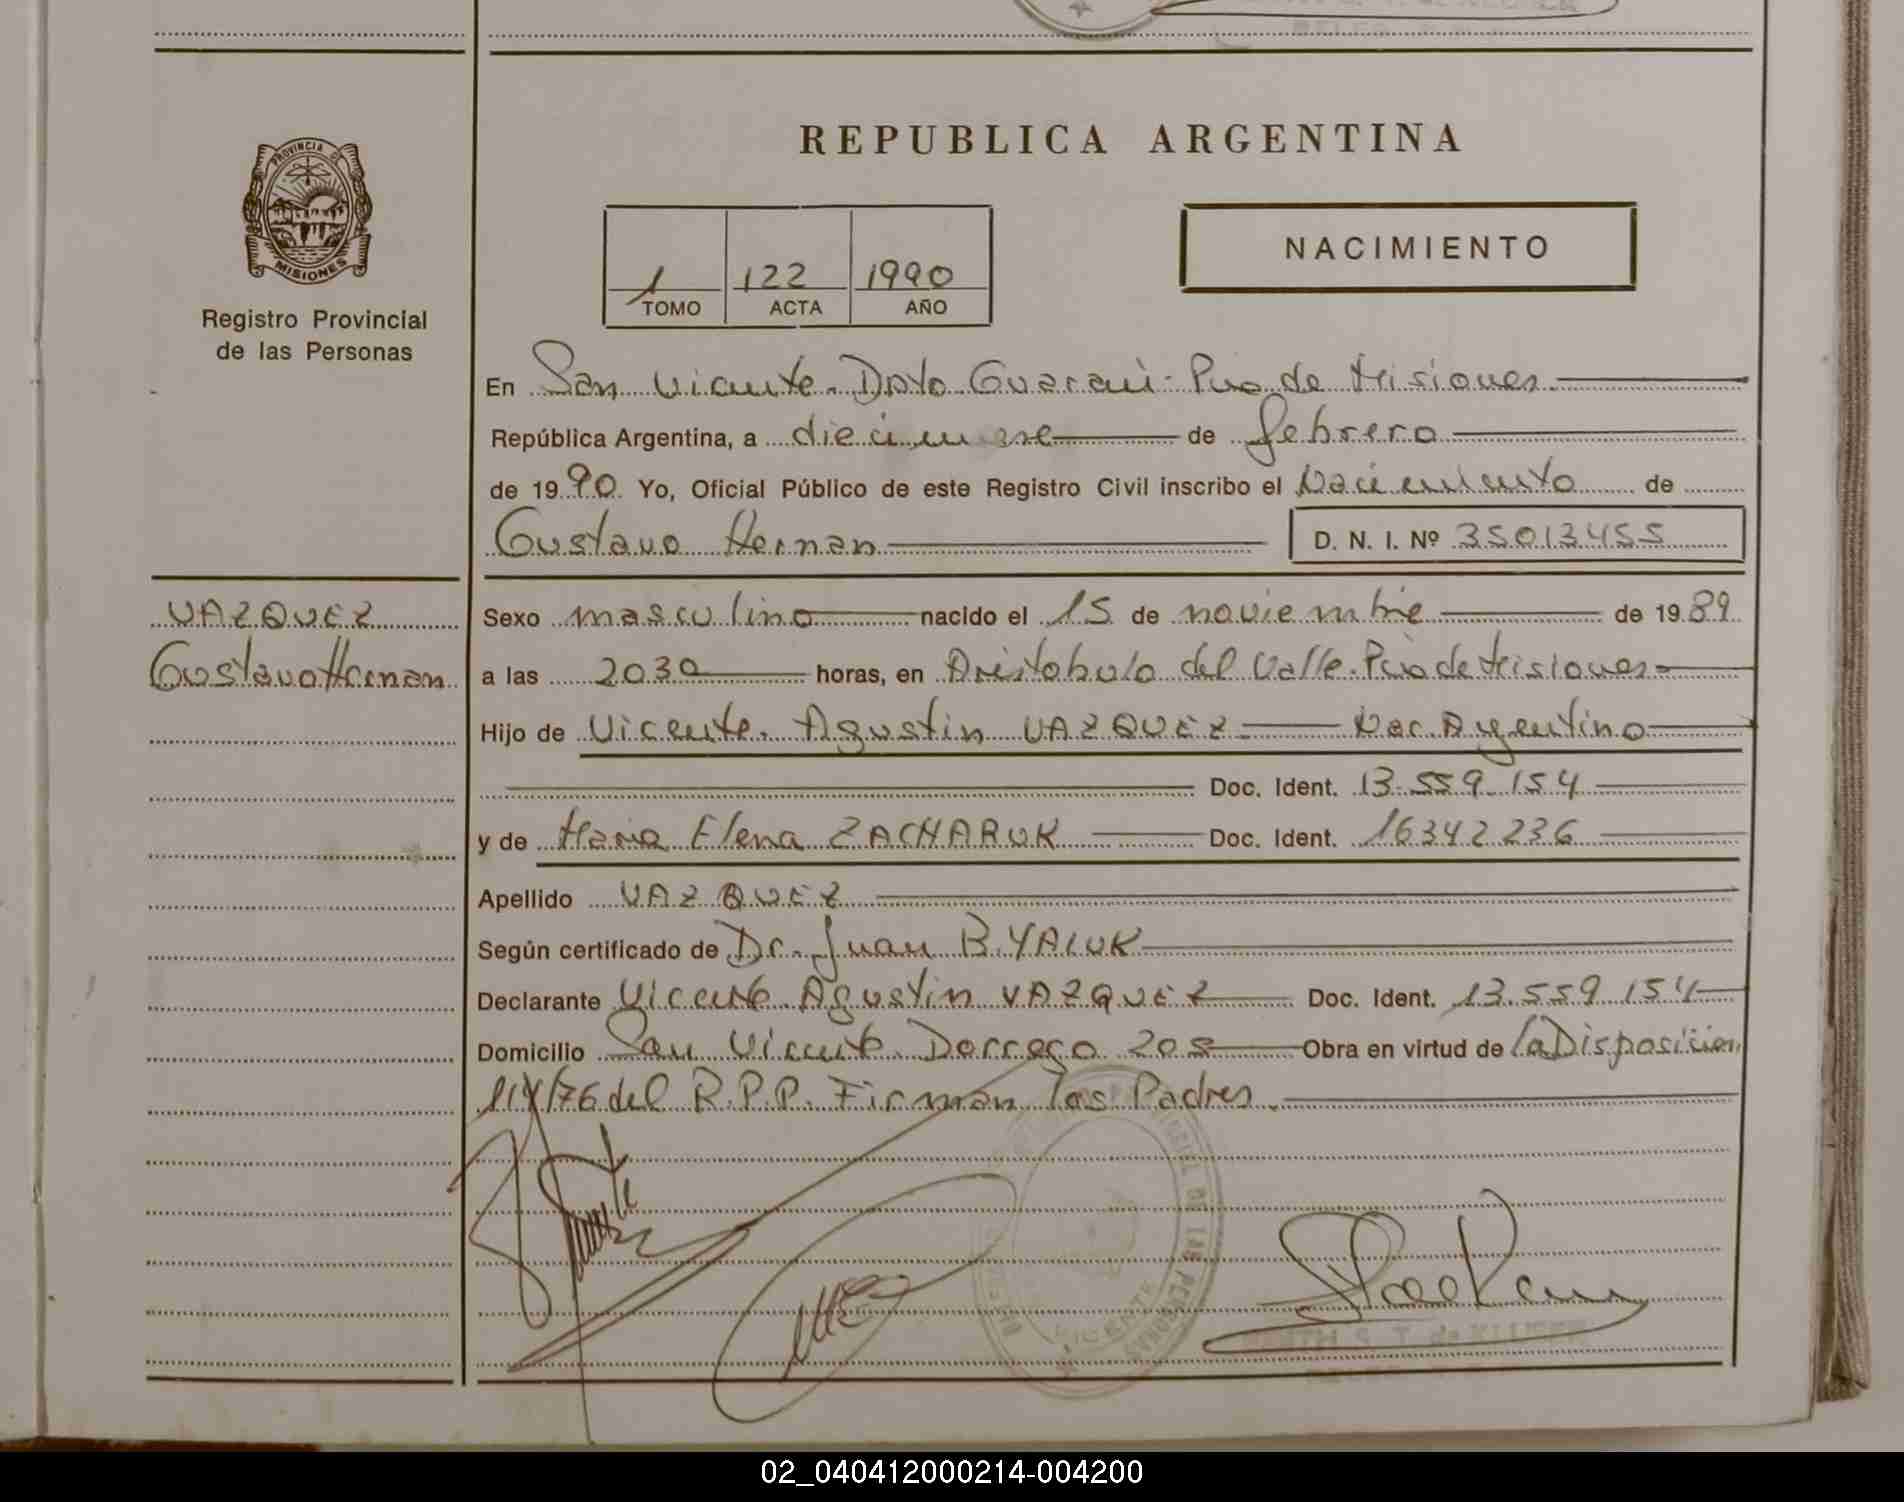 REPUBLICA ARGENTINA
PROVINCIA DE
MISIONES
Registro Provincial
de las Personas
1 122 1990
TOMO ACTA AÑO
NACIMIENTO
En San Vicente. Dpto Guaraní - Pcia de Misiones
República Argentina, a diecinueve de febrero
de 19 90 Yo, Oficial Público de este Registro Civil inscribo el Nacimiento de
Gustavo Hernan D. N. I. Nº 35013455
VAZQUEZ
Gustavo Hernan
Sexo masculino nacido el 15 de noviembre de 19 89
a las 2030 horas, en Aristobulo del Valle. Pcia de Misiones
Hijo de Vicente. Agustin VAZQUEZ Nac. Argentino
Doc. Ident. 13.559.154
y de Maria Elena ZACHARUK Doc. Ident. 16342236
Apellido VAZQUEZ
Según certificado de Dr. Juan B. YALUK
Declarante Vicente Agustin VAZQUEZ Doc. Ident. 13.559.154
Domicilio San Vicente Dorrego 208 Obra en virtud de la Disposicion
114/76 del R.P.P. Firman los Padres.
DE LAS PERSONAS
VICENTE
02_040412000214-004200